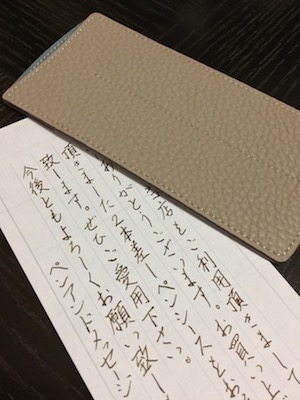 当店をご利用頂きまして
がとうございます。お買い上
2本差しペンシースをお
頂きまし
致します。ぜひご愛用下さい。
今後ともよろしくお願い致し
ペンアンドメッセージ